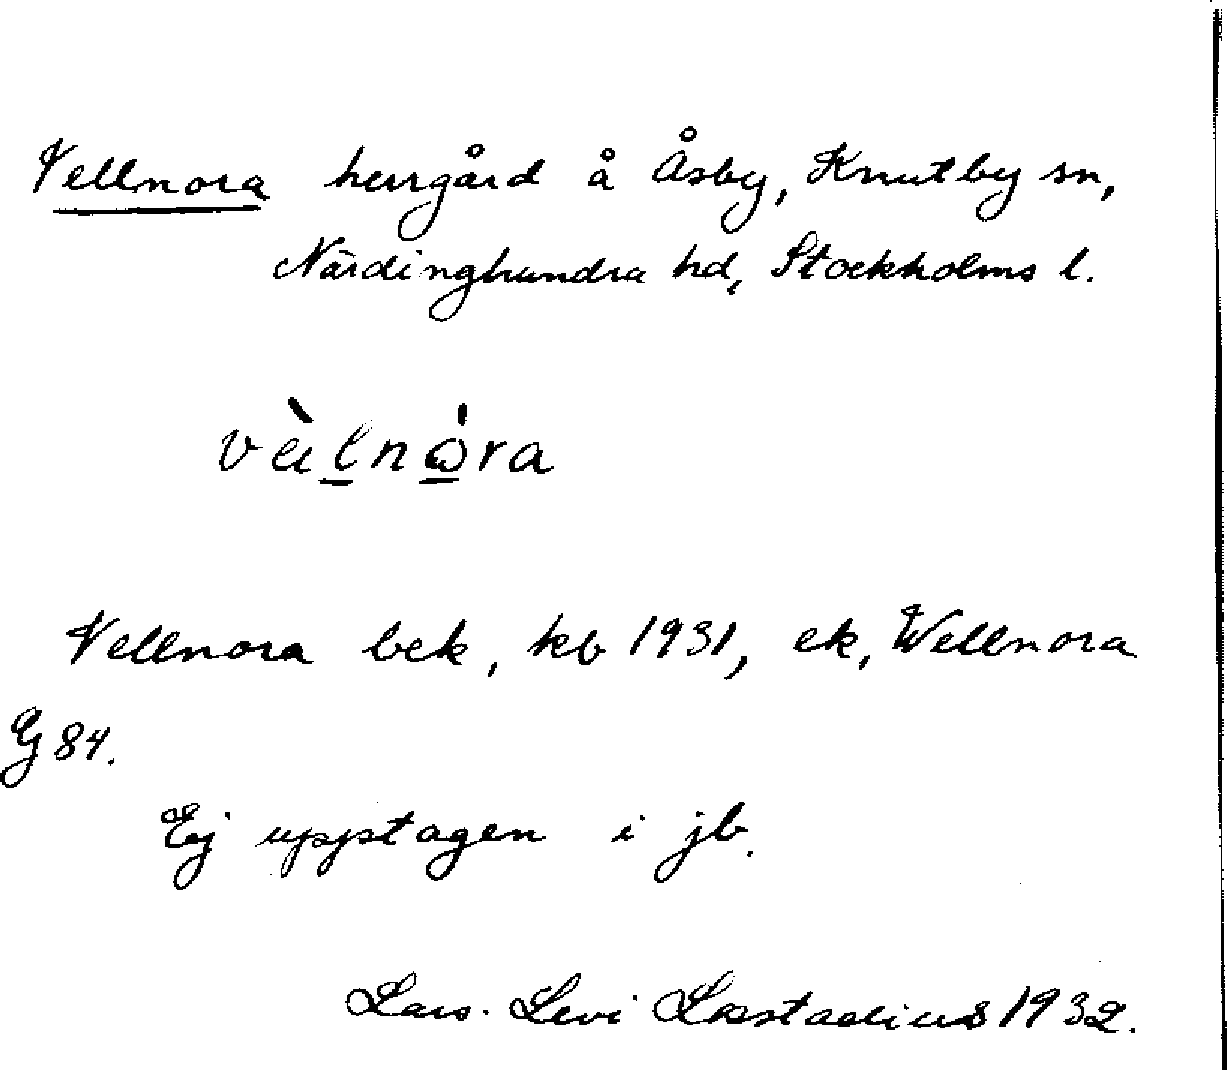 Vellnora herrgård å Åsby, Knutby sn,
Närdinghundra hd, Stockholms l.
vä̀lnόra
Vellnora bek, kb 1931, ek, Wellnora
G 84.
Ej upptagen i jb.
Lars. Levi Læstadius 1932.